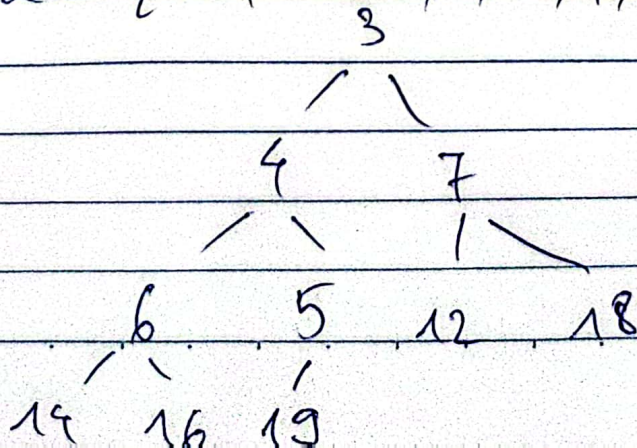 3
4 7
6 5 12 18
14 16 19